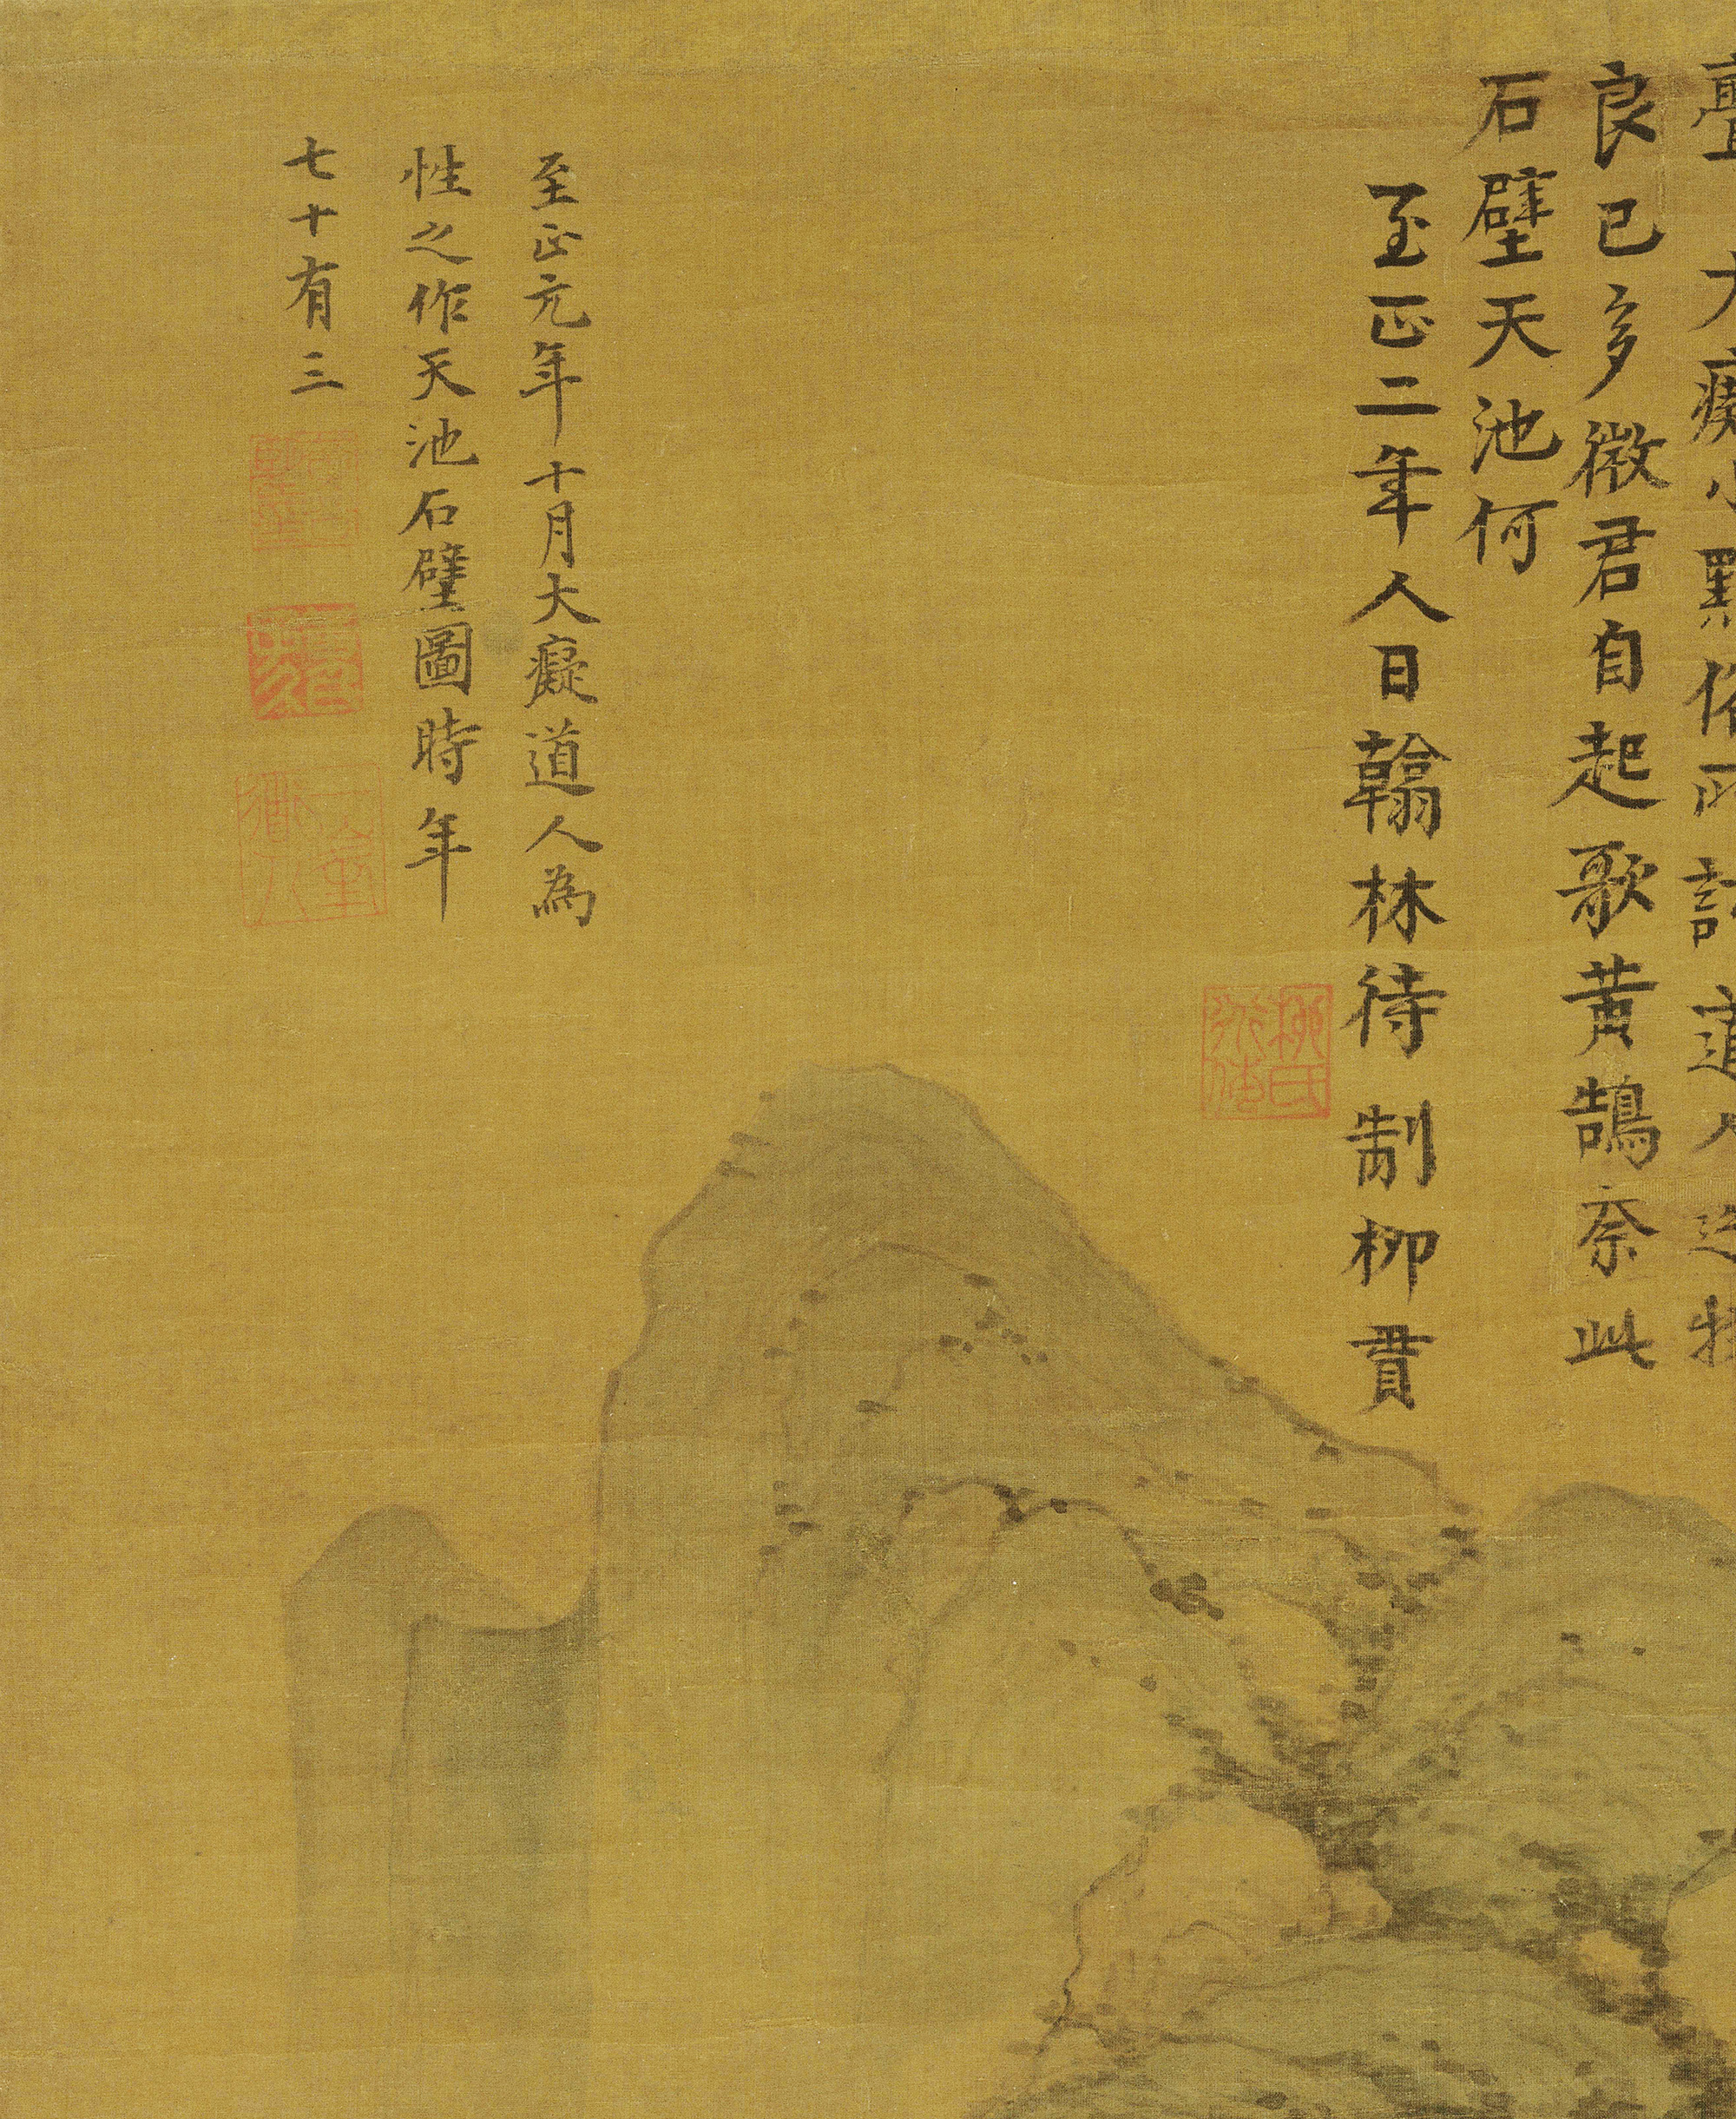 大癡小黠俗所訶道人
良已多微君自起歌黄鵠奈此
石壁天池何
至正二年人日翰林待制柳貫
柳氏
至正元年十月大癡道人為
性之作天池石壁圖時年
七十有三